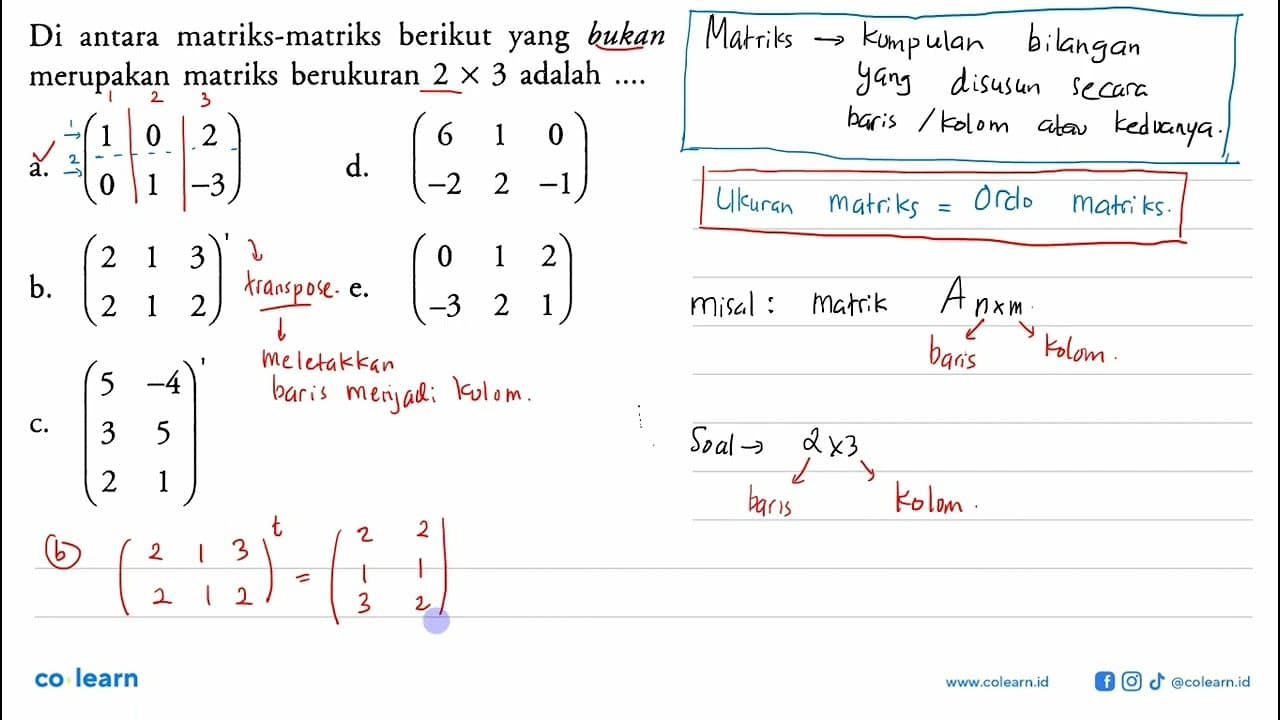 Di antara matriks-matriks berikut yang bukan
merupakan matriks berukuran 2 × 3 adalah ....
1 2 3
a. 1→ ( 1 0 2 )
2→ ( 0 1 −3 )
d. ( 6 1 0 )
( −2 2 −1 )
b. ( 2 1 3 )'
( 2 1 2 )
transpose.
meletakkan
baris menjadi kolom.
e. ( 0 1 2 )
( −3 2 1 )
c. ( 5 −4 )'
( 3 5 )
( 2 1 )
(b) ( 2 1 3 )t = ( 2 2 )
( 2 1 2 ) ( 1 1 )
( 3 2 )
Matriks → kumpulan bilangan
yang disusun secara
baris / kolom atau keduanya.
Ukuran matriks = Ordo matriks.
misal : matrik A n×m.
baris kolom.
Soal → 2×3
baris kolom.
co learn
www.colearn.id
@colearn.id